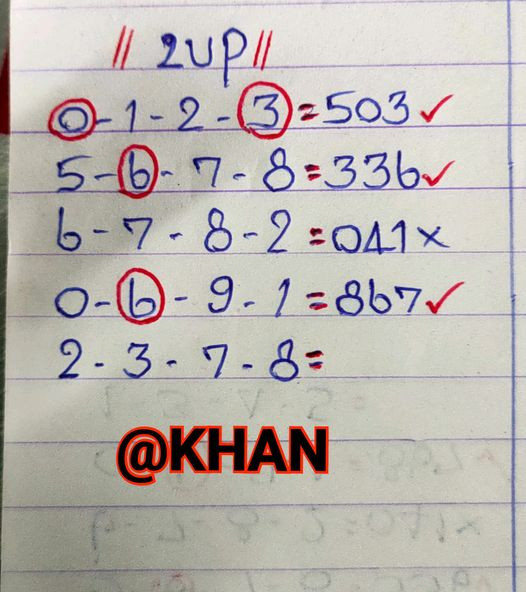 // 2up //
0-1-2-3=503✓
5-6-7-8=336✓
6-7-8-2=041×
0-6-9-1=867✓
2-3-7-8=
@KHAN